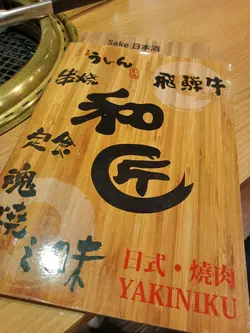 Sake 日本酒
うどん
串烧
飛騨牛
和
匠
定食
魂
燒
之味
日式・燒肉
YAKINIKU